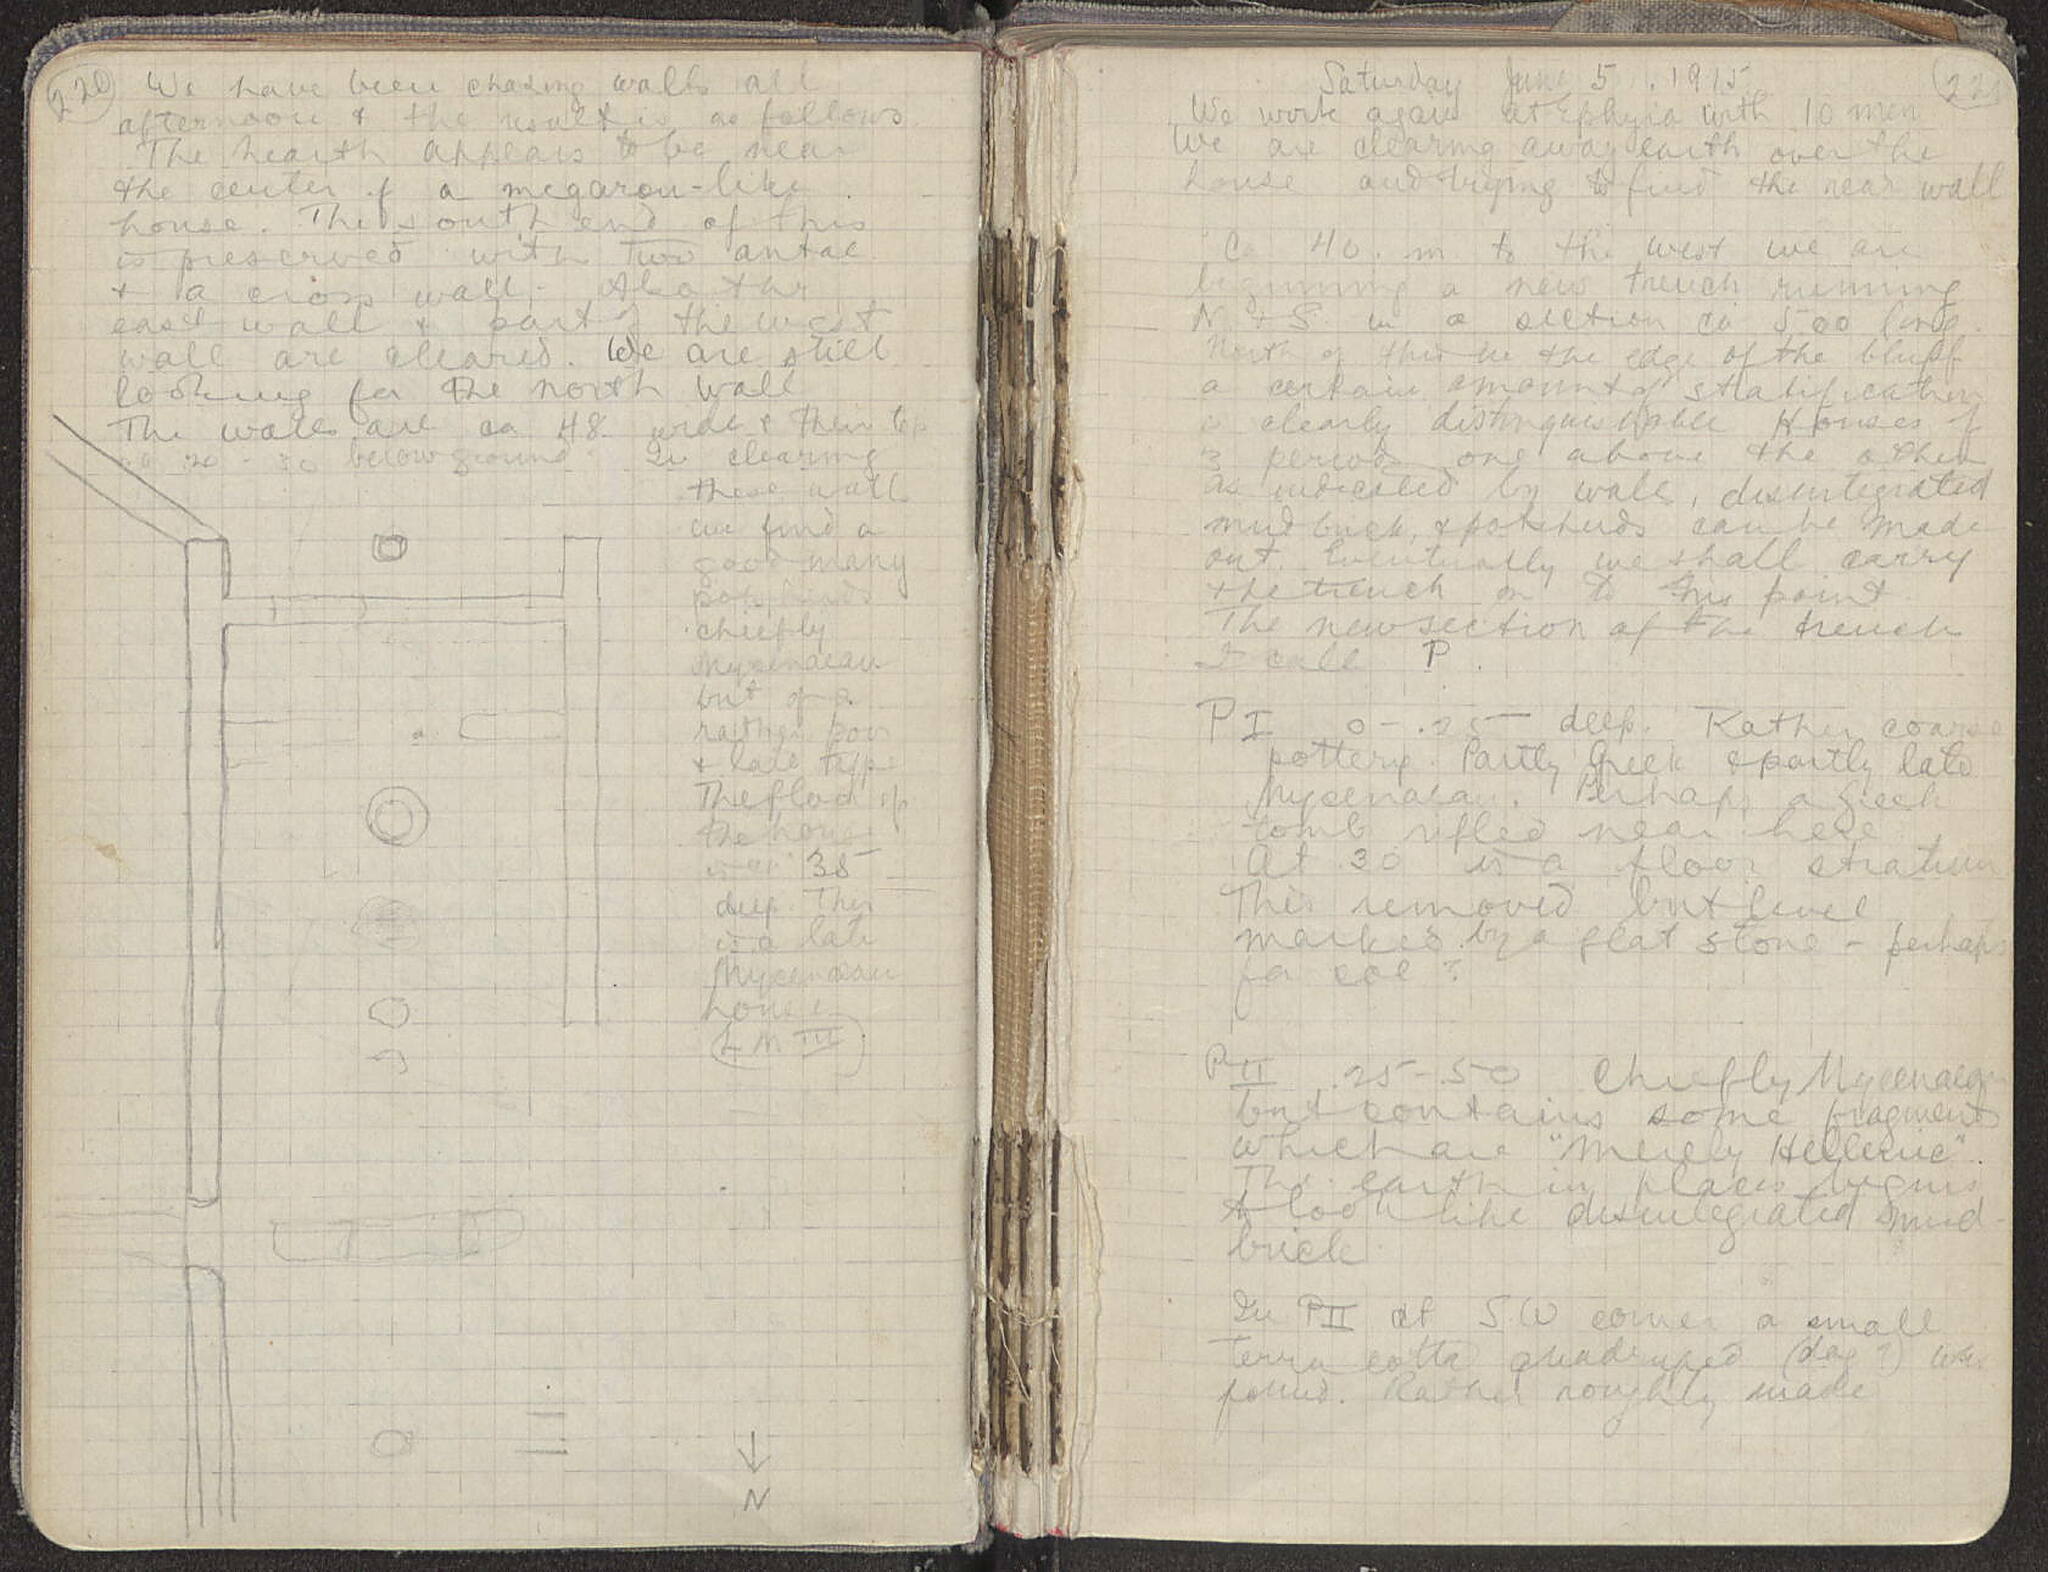 220
We have been chasing walls all
afternoon & the result is as follows.
The hearth appears to be near
the center of a megaron-like
house. The south end of this
is preserved with two antae
& a cross wall. Also the
east wall & part of the west
wall are cleared. We are still
looking for the north wall
The walls are ca 48 wide & their top
ca 20 - 30 below ground. In clearing
these walls
we find a
good many
potsherds
chiefly
Mycenaean
but of a
rather poor
& late type
The floor of
the house
is at 35
deep. This
is a late
Mycenaean
house
(LM III)
N
Saturday June 5. 1915
221
We work again at Ephyra with 10 men
We are clearing away earth over the
house and trying to find the near wall
Ca 40. m to the west we are
beginning a new trench running
N & S in a section ca 5.00 long.
North of this in the edge of the bluff
a certain amount of stratification
is clearly distinguishable Houses of
3 periods one above the other
as indicated by walls, disintegrated
mud brick, & potsherds can be made
out. Eventually we shall carry
the trench on to this point.
The new section of the trench
I call P.
P I 0 - .25 deep. Rather coarse
pottery. Partly Greek & partly late
Mycenaean. Perhaps a Greek
tomb rifled near here
At .30 is a floor stratum
This removed but level
marked by a flat stone - perhaps
for col?
P II .25 - .50 Chiefly Mycenaean
but contains some fragments
which are "merely Hellenic".
The earth in places begins
to look like disintegrated mud-
brick.
In P II at SW corner a small
terra cotta quadruped (dog?) was
found. Rather roughly made